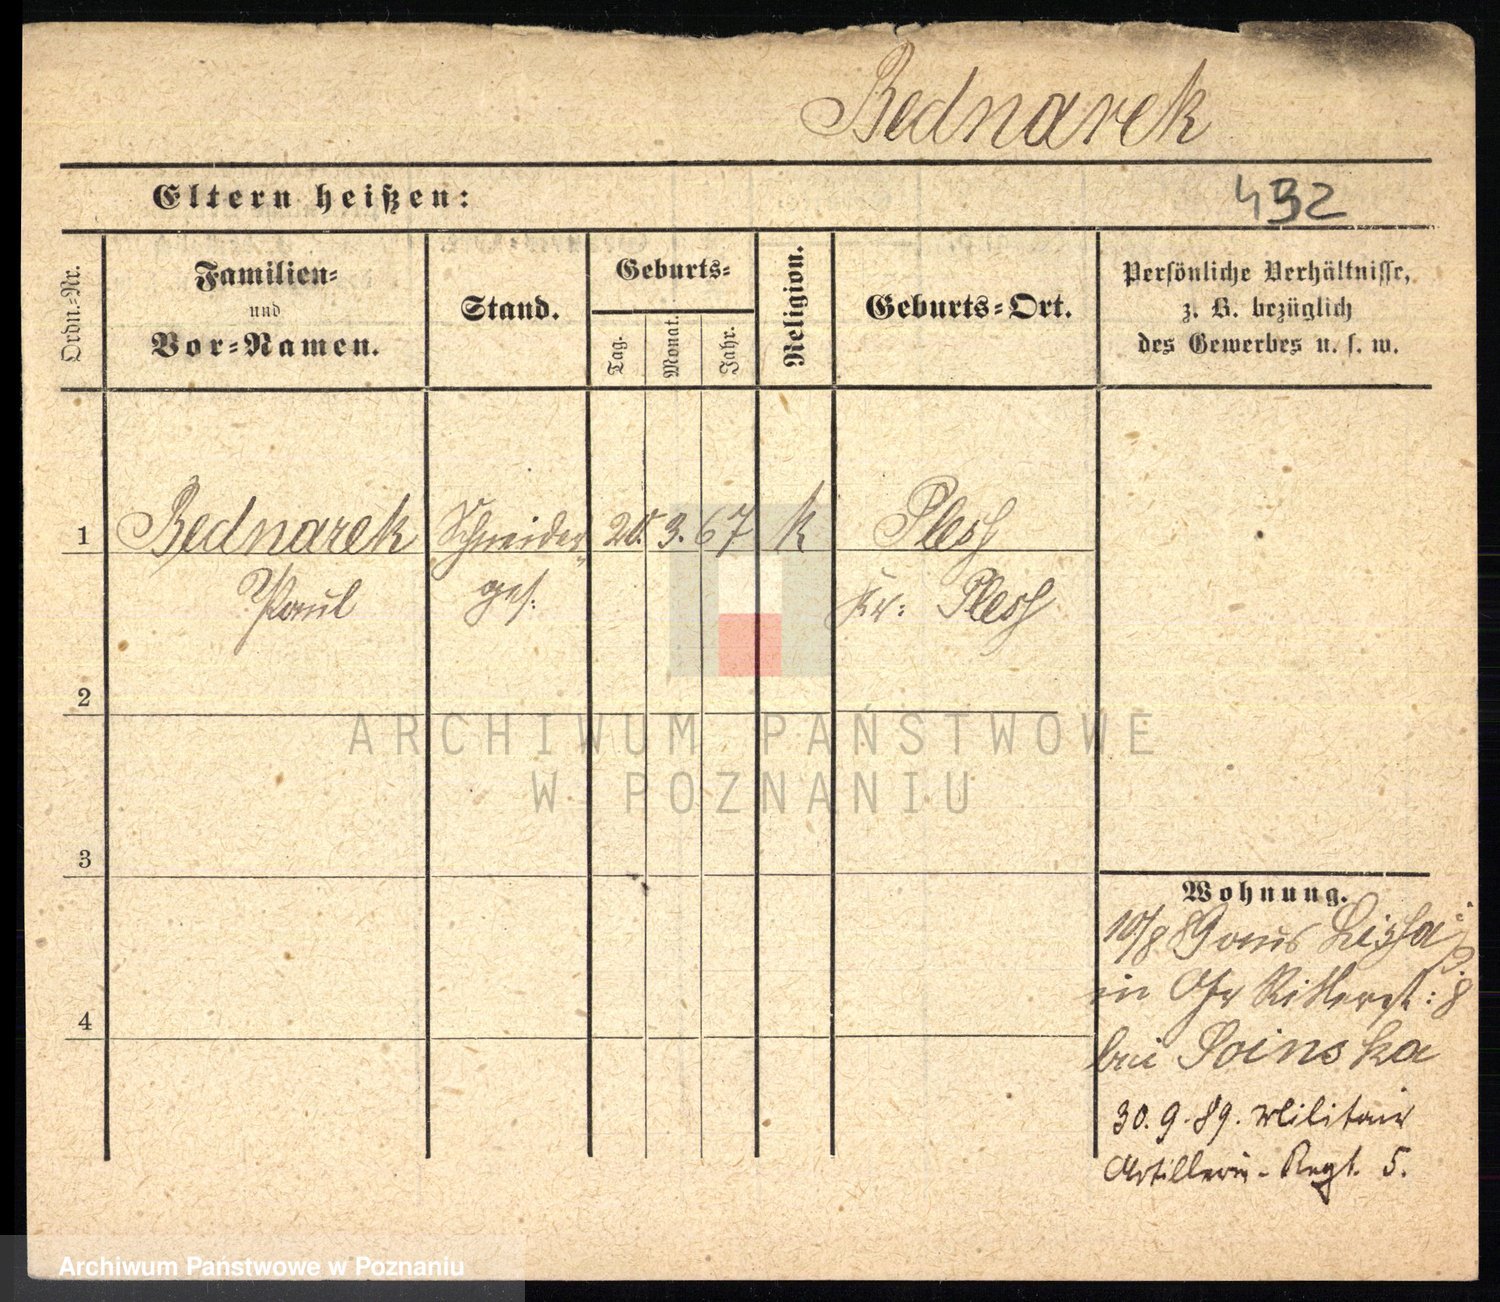 Bednarek
Eltern heißen:
492
Ordn.-Nr.
Familien-
und
Vor-Namen.
Stand.
Geburts-
Tag.
Monat.
Jahr.
Religion.
Geburts-Ort.
Persönliche Verhältnisse,
z. B. bezüglich
des Gewerbes u. s. w.
1 Bednarek Schneider 3. 67 k Pless
Paul ges. Kr: Pless
2
ARCHIWUM PAŃSTWOWE
W POZNANIU
3
Wohnung.
10/8 89 aus Lissa
in Gr Ritterst: 8
bei Soinska
4
30. 9. 89. Militair
Artillerie-Regt. 5.
Archiwum Państwowe w Poznaniu